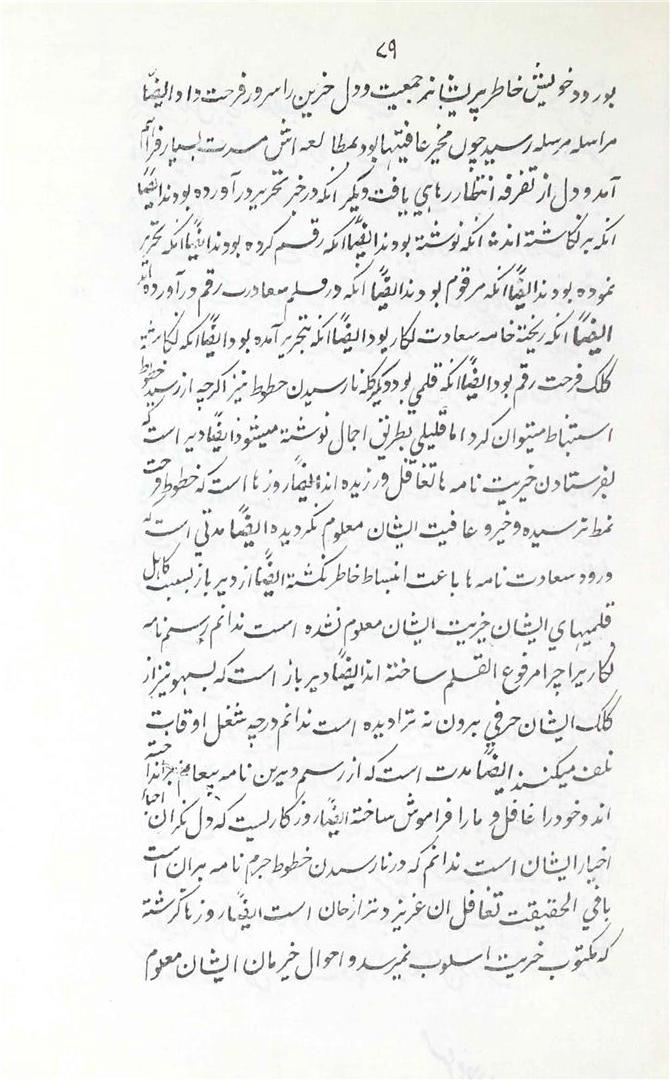 ۷۹
بورود خویش خاطر پریشانرا جمعیت و دل حزین را سرور فرحت داد ایضاً
مراسله مرسله رسید چون مخبر عافیتها بود بمطالعه اش مسرت بسیار فراهم
آمد و دل از تفرقه انتظار رهاي یافت دیگر انکه در خبر تحریر درآورده بودند ایضاً
انکه بر نکاشته اند انکه نوشته بودند ایضاً انکه رقم کرده بودند ایضاً انکه تحریر
نموده بودند ایضاً انکه مرقوم بودند ایضاً انکه در قلم سعادت رقم درآورده اند
ایضاً انکه ریخته خامه سعادت نکار بود ایضاً انکه بتحریر آمده بود ایضاً انکه نکارشته
کلک فرحت رقم بود ایضاً انکه قلمي بود دیکر کله نارسیدن خطوط نیز اکرچه از رسید خطوط
استنباط میتوان کرد اما قلیلي بطریق اجمال نوشته میشود ایضاً دیر است که
بفرستادن خیریت نامه ها تغافل ورزیده اند ایضاً روزها است که خطوط فرحت
نمط نرسیده و خیر و عافیت ایشان معلوم نکردیده ایضاً مدتي است که
ورود سعادت نامه ها باعث انبساط خاطر نکشته ایضاً از دیر باز بسبب کاهل
قلمیهاي ایشان خیریت ایشان معلوم نشده است ندانم رسم نامه
نکاریرا چرا مرفوع القلم ساخته اند ایضاً دیر باز است که بسهو نیز از
کلک ایشان حرفي بیرون نه ترادیده است ندانم درچه شغل اوقات
تلف میکنند ایضاً مدت است که از رسم دیرین نامه پیغام
اند و خود را غافل و ما را فراموش ساخته ایضاً روزکاریست که دل نکران
اخبار ایشان است ندانم که در نارسیدن خطوط جرم نامه بران است
یا في الحقیقت تغافل ان عزیز تر از جان است ایضاً روزها کذشته
که مکتوب خیریت اسلوب نمیرسد و احوال خیرمان ایشان معلوم